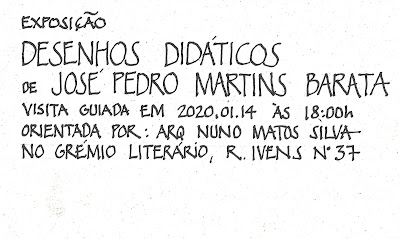 EXPOSIÇÃO
DESENHOS DIDÁTICOS
DE JOSÉ PEDRO MARTINS BARATA
VISITA GUIADA EM 2020.01.14 ÀS 18:00h
ORIENTADA POR: ARQ NUNO MATOS SILVA
NO GRÉMIO LITERÁRIO, R. IVENS Nº 37